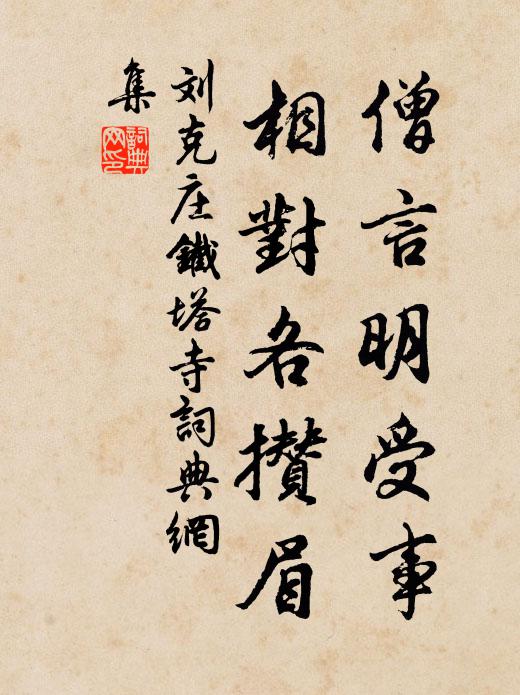 僧言明受事
相對各攅眉
刘克庄鐵塔寺詞典網
集
詞典網印